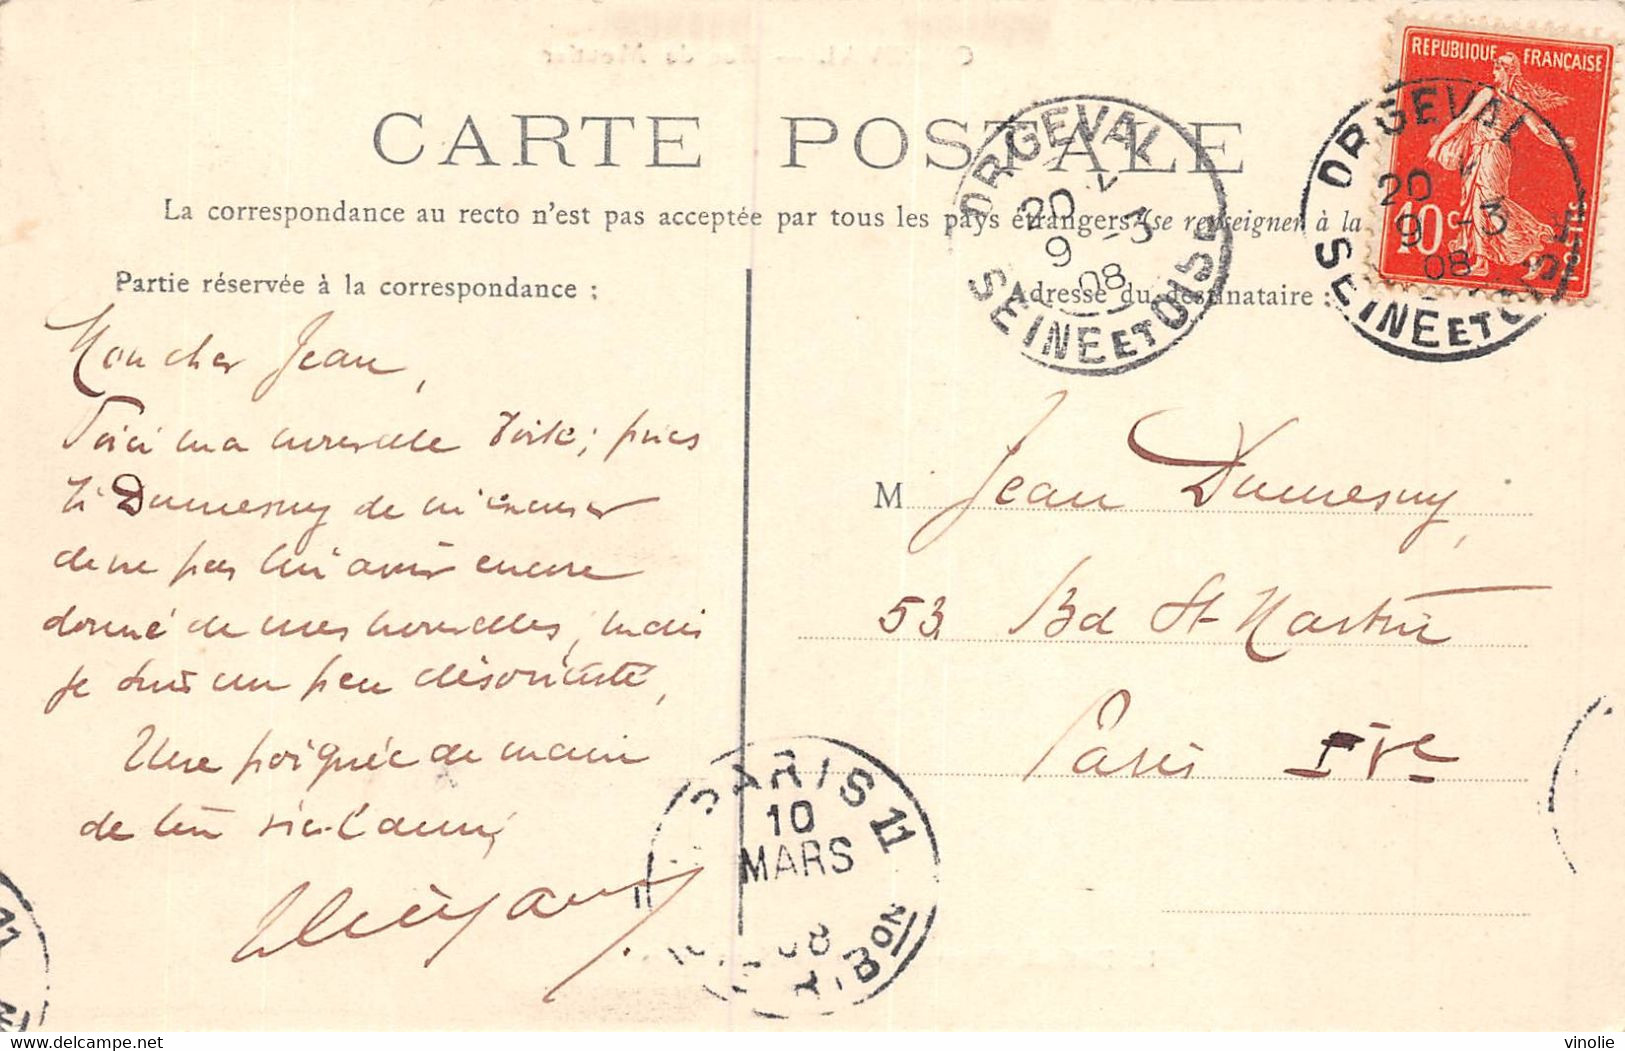 CARTE POSTALE
La correspondance au recto n'est pas acceptée par tous les pays étrangers (se renseigner à la
Partie réservée à la correspondance :
Adresse du destinataire :
REPUBLIQUE FRANÇAISE
10 c
POSTES
ORGEVAL
20
9 -3
08
SEINE ET OISE
ORGEVAL
20
9 -3
08
SEINE ET OISE
Mon cher Jean,
Voici ma nouvelle ; priez
Dumesny de m'excuser
de ne pas lui avoir encore
donné de mes nouvelles, mais
je suis un peu désorienté,
Une poignée de main
de ton
M Jean Dumesny,
53, Bd St-Martin
Paris IVe
PARIS 11
10
MARS
08
11
vinolie